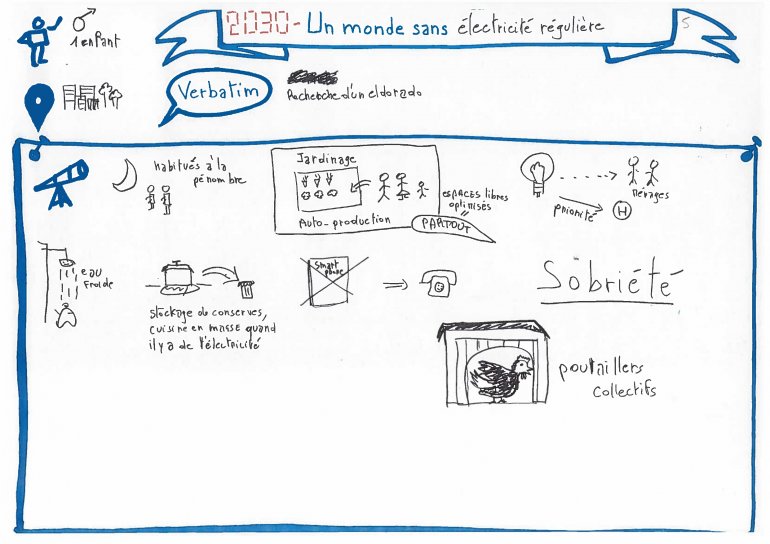 2030 - Un monde sans électricité régulière
5
1 enfant
Verbatim
Recherche d'un eldorado
habitués à la
pénombre
Jardinage
Auto-production
ESPACES libres
optimisés
PARTOUT
Ménages
priorité
H
eau
froide
stockage de conserves,
cuisine en masse quand
il y a de l'électricité
Smart
phone
Sobriété
poulaillers
collectifs